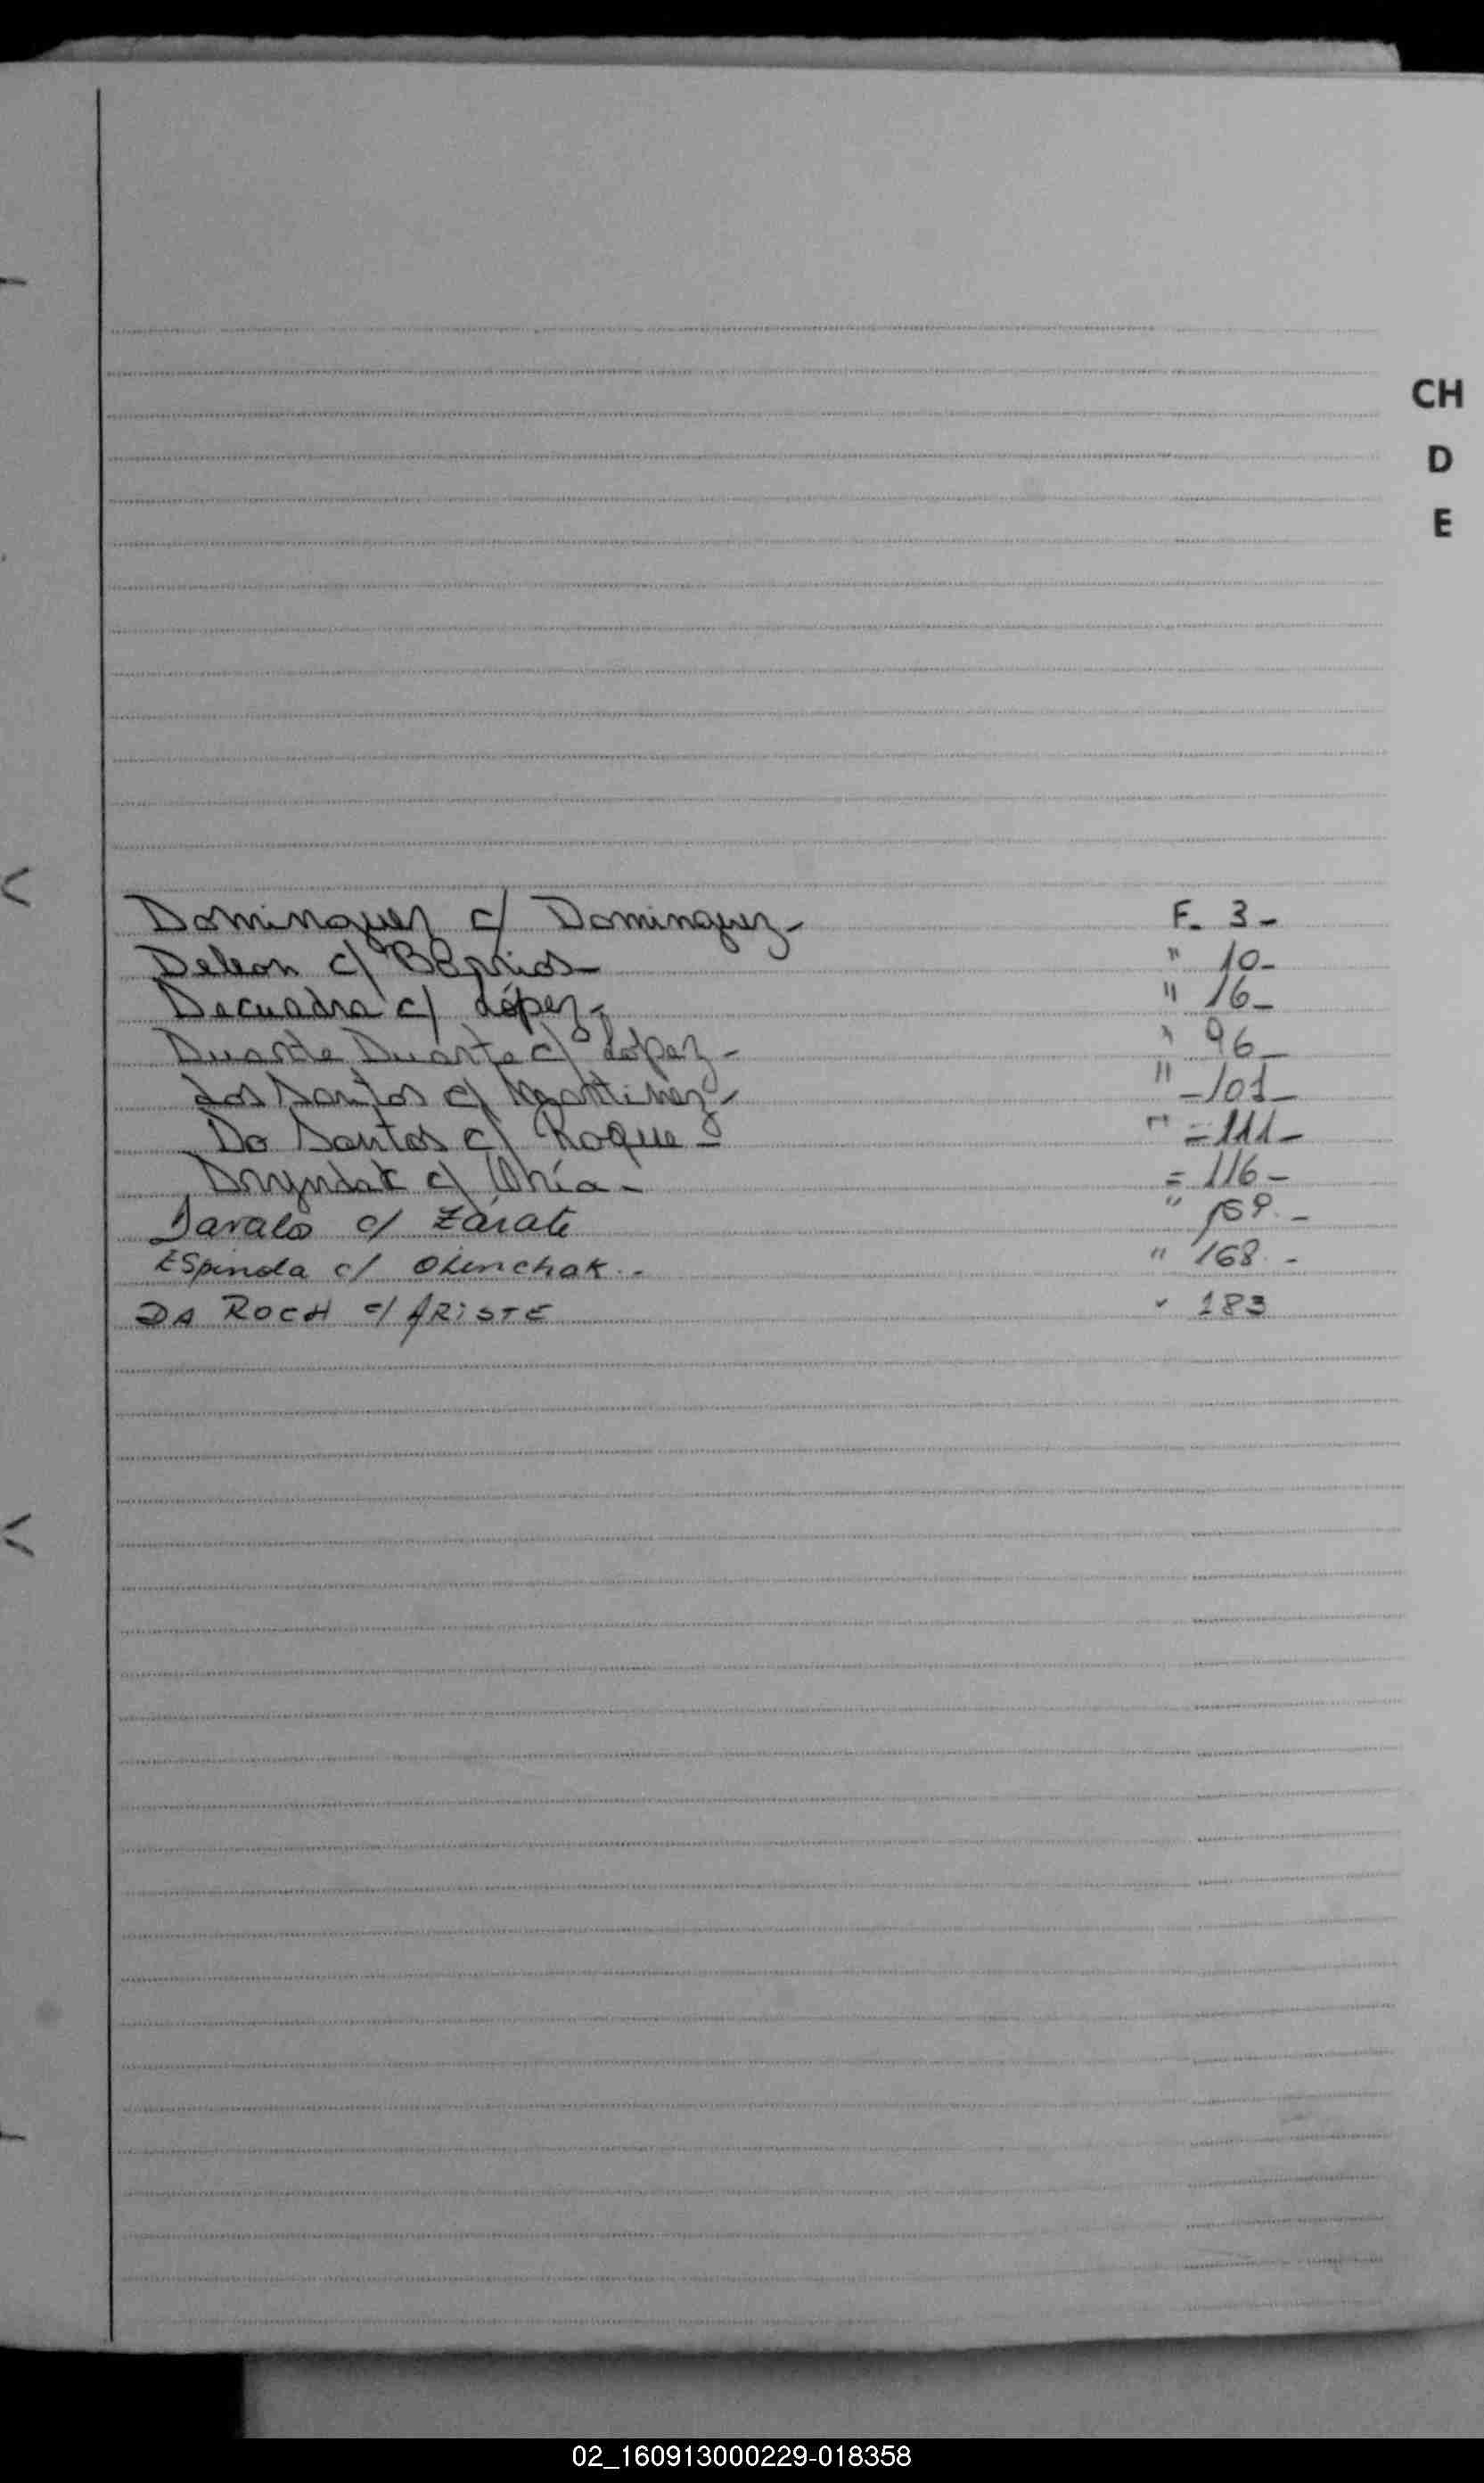 CH
D
E
Dominguez c/ Dominguez - F. 3 -
Deleon c/ Barrios - " 10 -
Decuadra c/ López - " 16 -
Duarte Duarte c/ López - " 96 -
Dos Santos c/ Martinez - " - 101 -
Do Santos c/ Roque - " = 111 -
c/ = 116 -
Davalo c/ Zárate " 159. -
ESpinola c/ Olenchak. - " 168. -
DA ROCH c/ ARiSTE " 183
02_160913000229-018358